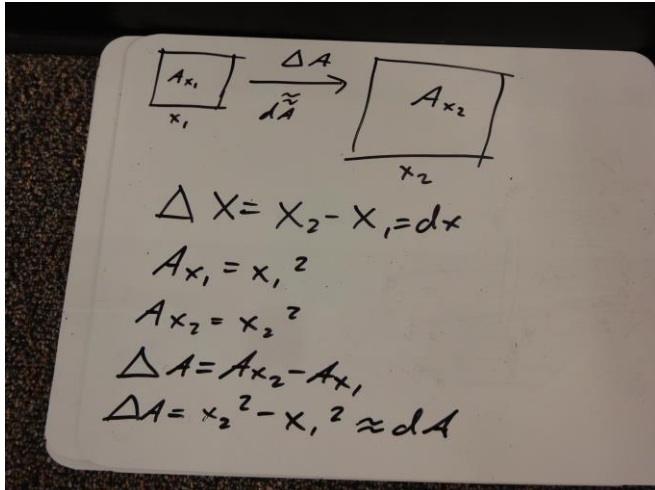 ΔA
Aₓ₁
Aₓ₂
≈
dA
x₁
x₂
Δ X = X₂ - X₁ = dx
Aₓ₁ = x₁²
Aₓ₂ = x₂²
ΔA = Aₓ₂ - Aₓ₁
ΔA = x₂² - x₁² ≈ dA